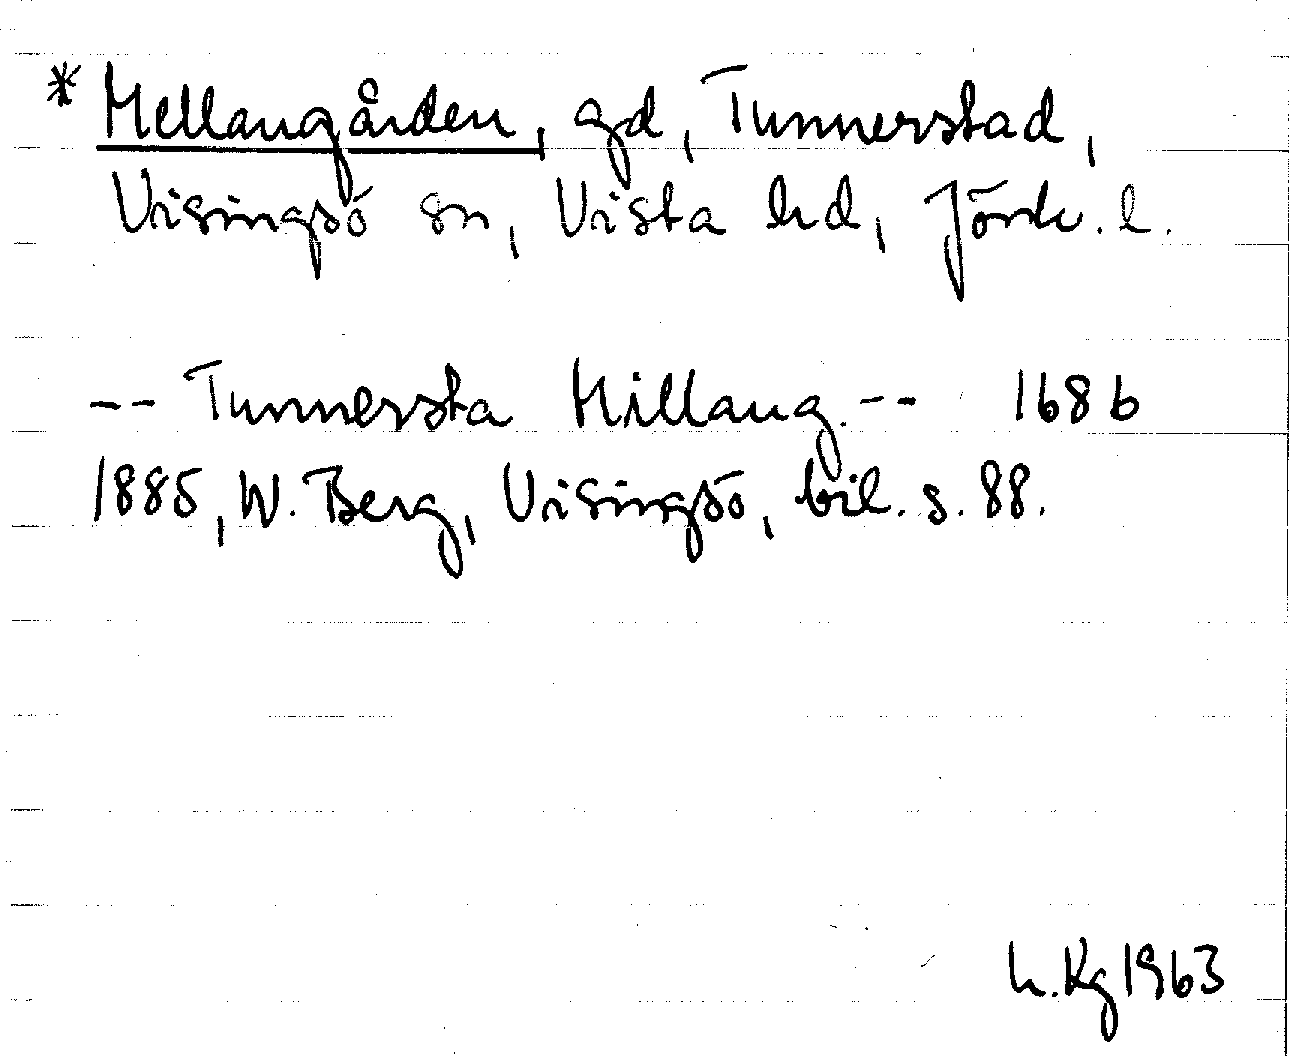 * Mellangården, gd, Tunnerstad,
Visingsö sn, Vista hd, Jönk. l.
-- Tunnersta Millang. -- 1686
1885, W. Berg, Visingsö, bil. s. 88.
h. Kg 1963